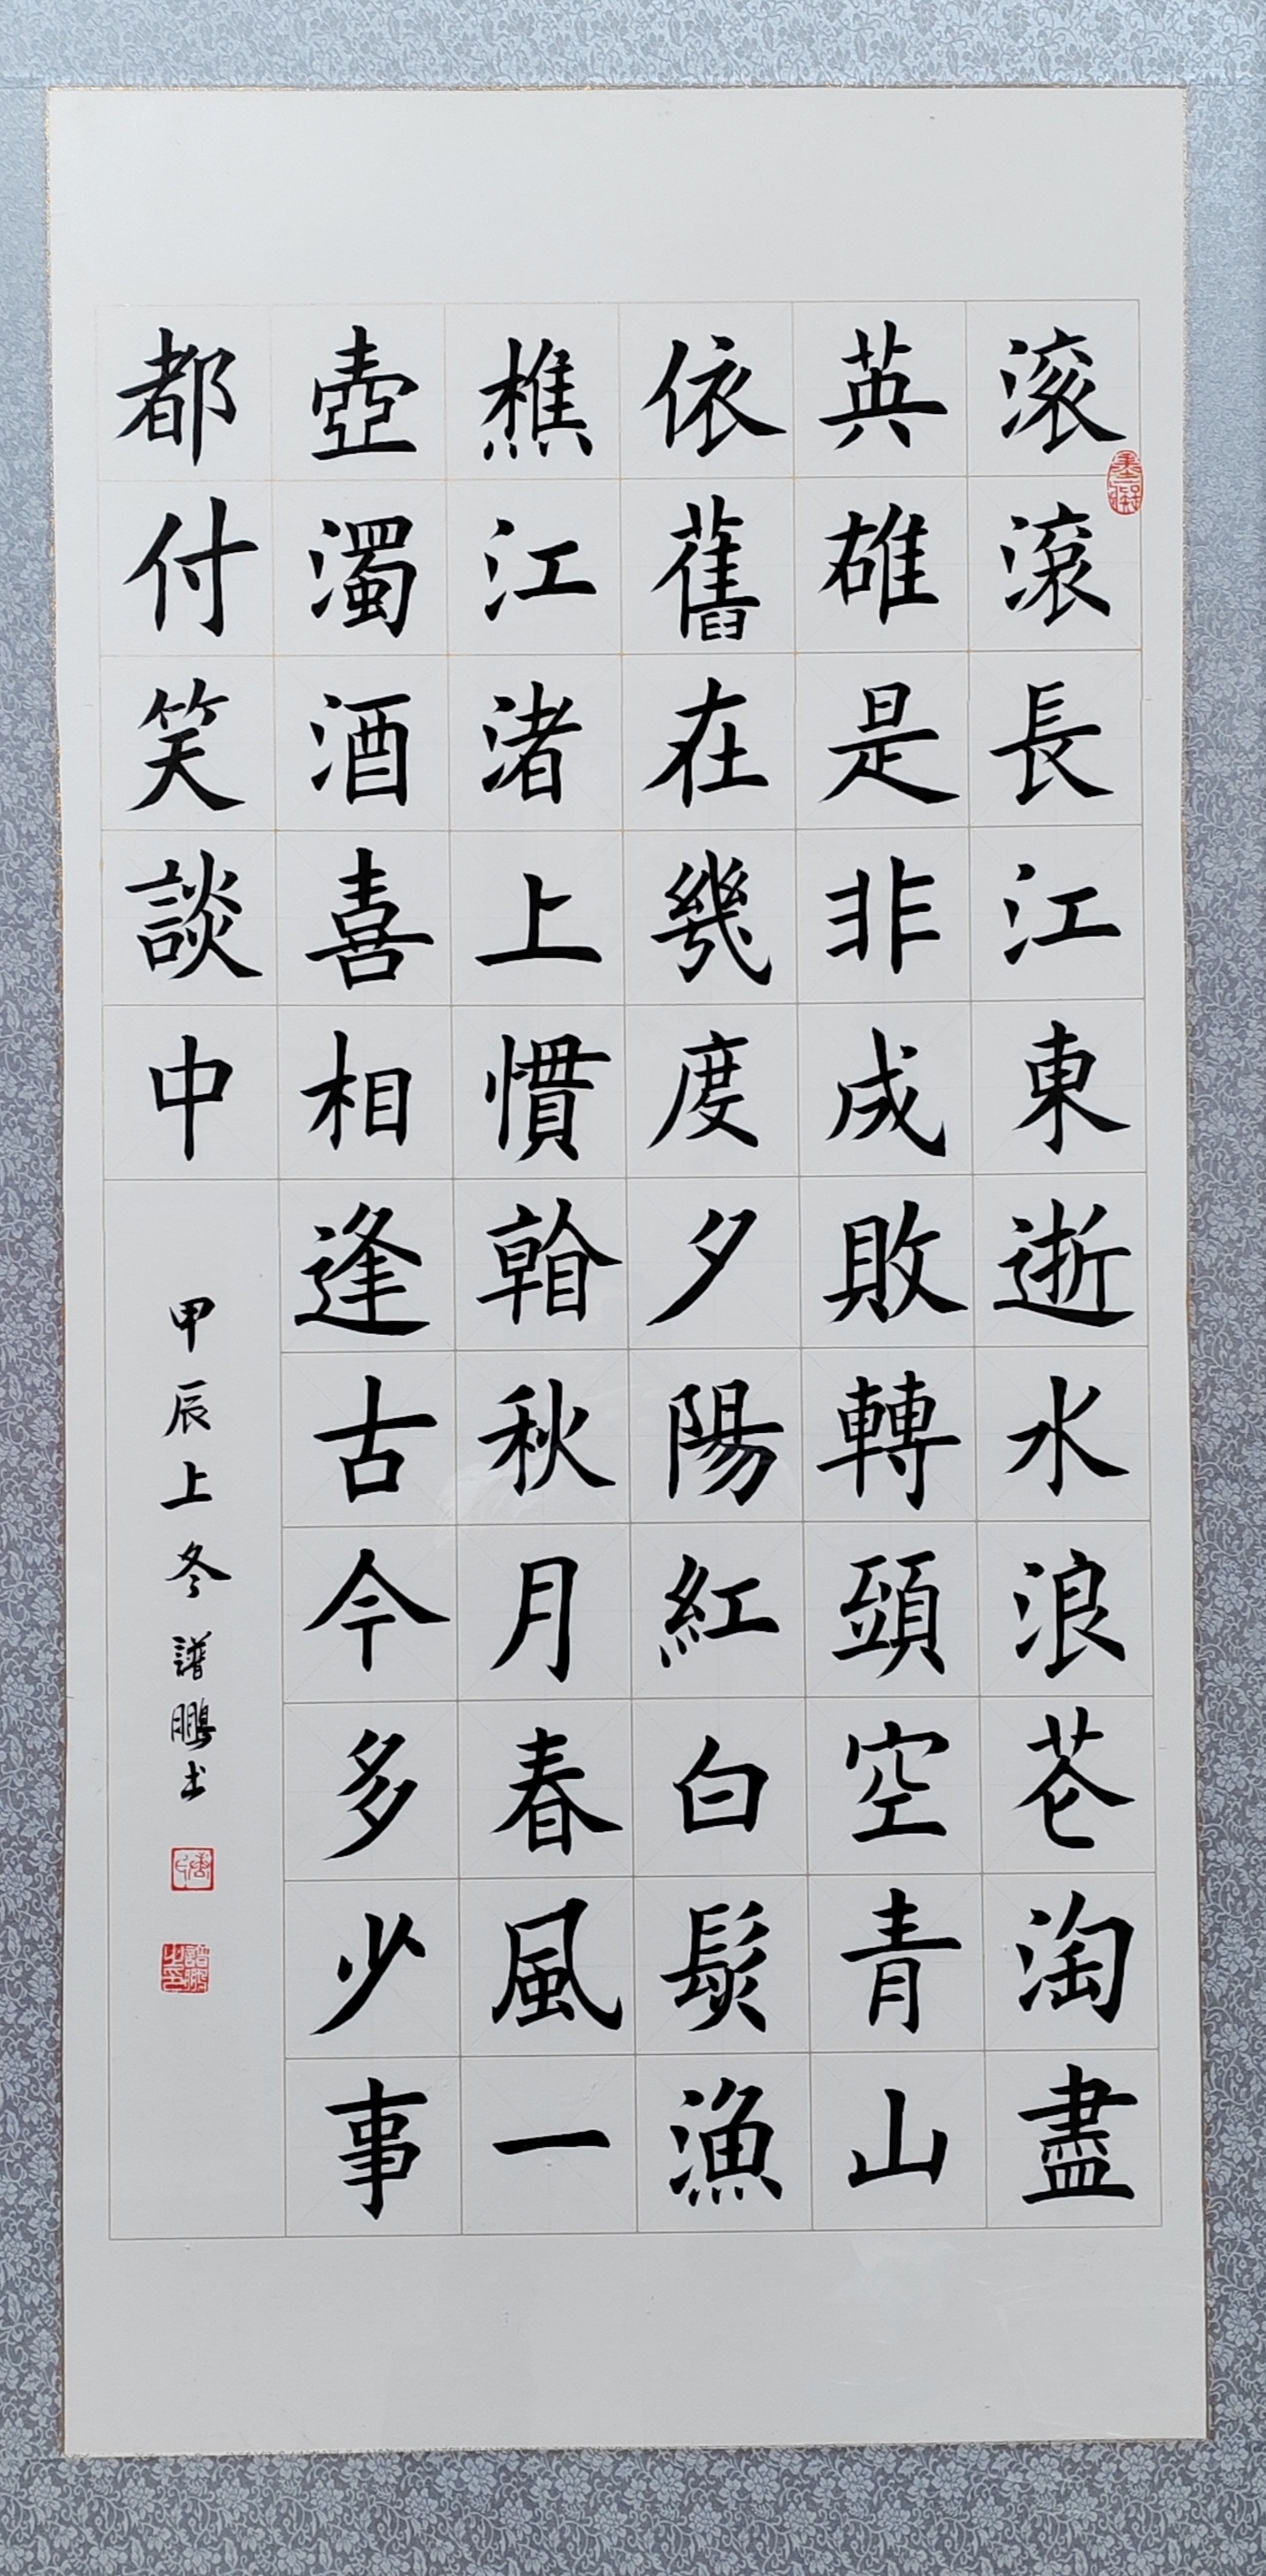 滚滾長江東逝水浪苍淘盡
英雄是非成敗轉頭空青山
依舊在幾度夕陽紅白髮漁
樵江渚上慣看秋月春風一
壺濁酒喜相逢古今多少事
都付笑談中
甲辰上冬譜鵬书
譜鵬之印